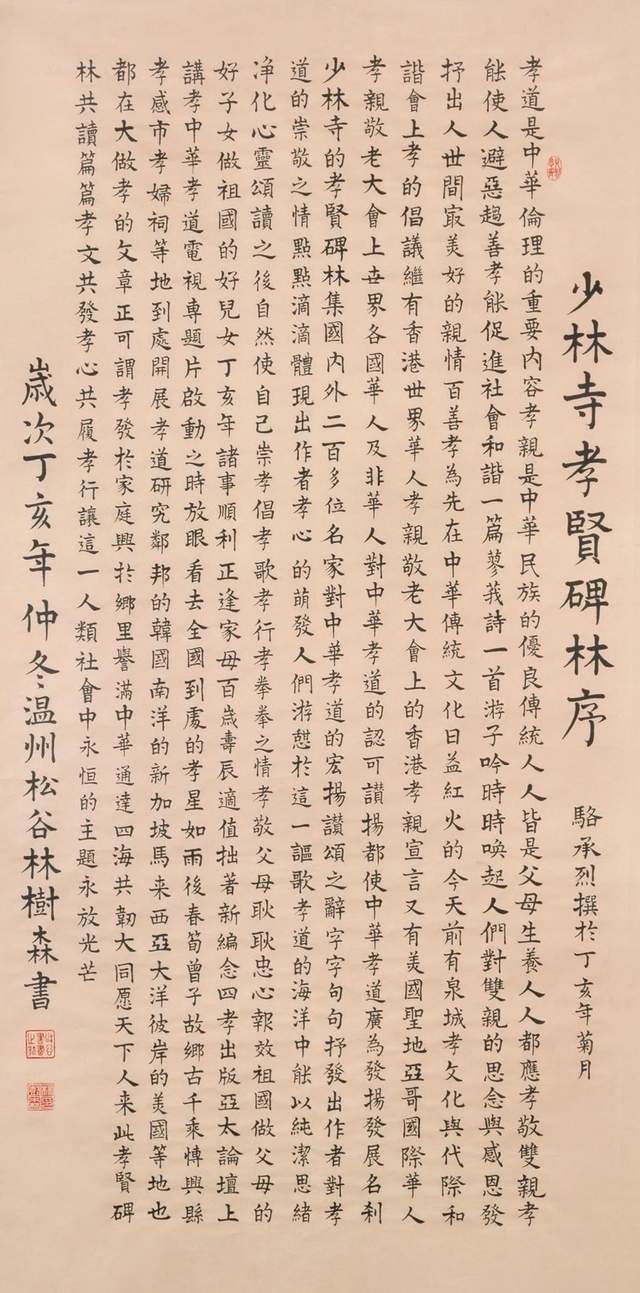 少林寺孝賢碑林序
駱承烈撰於丁亥年菊月
孝道是中華倫理的重要内容孝親是中華民族的優良傳統人人皆是父母生養人人都應孝敬雙親孝
能使人避惡趨善孝能促進社會和諧一篇蓼莪詩一首游子吟時時喚起人們對雙親的思念與感恩發
抒出人世間最美好的親情百善孝為先在中華傳統文化日益紅火的今天前有泉城孝文化與代際和
諧會上孝的倡議繼有香港世界華人孝親敬老大會上的香港孝親宣言又有美國聖地亞哥國際華人
孝親敬老大會上世界各國華人及非華人對中華孝道的認可讃揚都使中華孝道廣為發揚發展名刹
少林寺的孝賢碑林集國内外二百多位名家對中華孝道的宏揚讃頌之辭字字句句抒發出作者對孝
道的崇敬之情點點滴滴體現出作者孝心的萌發人們游憇於這一謳歌孝道的海洋中能以純潔思緒
净化心靈頌讀之後自然使自己崇孝倡孝歌孝行孝拳拳之情孝敬父母耿耿忠心報效祖國做父母的
好子女做祖國的好兒女丁亥年諸事順利正逢家母百歲壽辰適值拙著新編念四孝出版亞太論壇上
講孝中華孝道電視専題片啟動之時放眼看去全國到處的孝星如雨後春筍曾子故鄉古千乘愽興縣
孝感市孝婦祠等地到處開展孝道研究鄰邦的韓國南洋的新加坡馬来西亞大洋彼岸的美國等地也
都在大做孝的文章正可謂孝發於家庭興於鄉里譽滿中華通達四海共韌大同愿天下人来此孝賢碑
林共讀篇篇孝文共發孝心共履孝行讓這一人類社會中永恒的主題永放光芒
歲次丁亥年仲冬温州松谷林樹森書